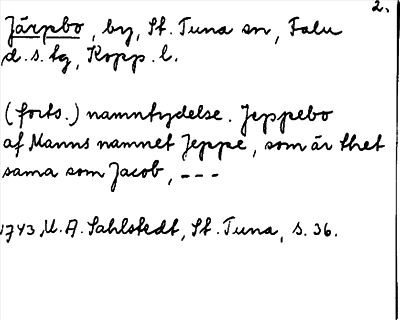 2.
Järpbo, by, St. Tuna sn, Falu
d.s. tg, Kopp. l.
(forts.) namntydelse. Jeppebo
af Manns namnet Jeppe, som är thet
sama som Jacob, ---
1743, U. A. Sahlstedt, St. Tuna, s. 36.